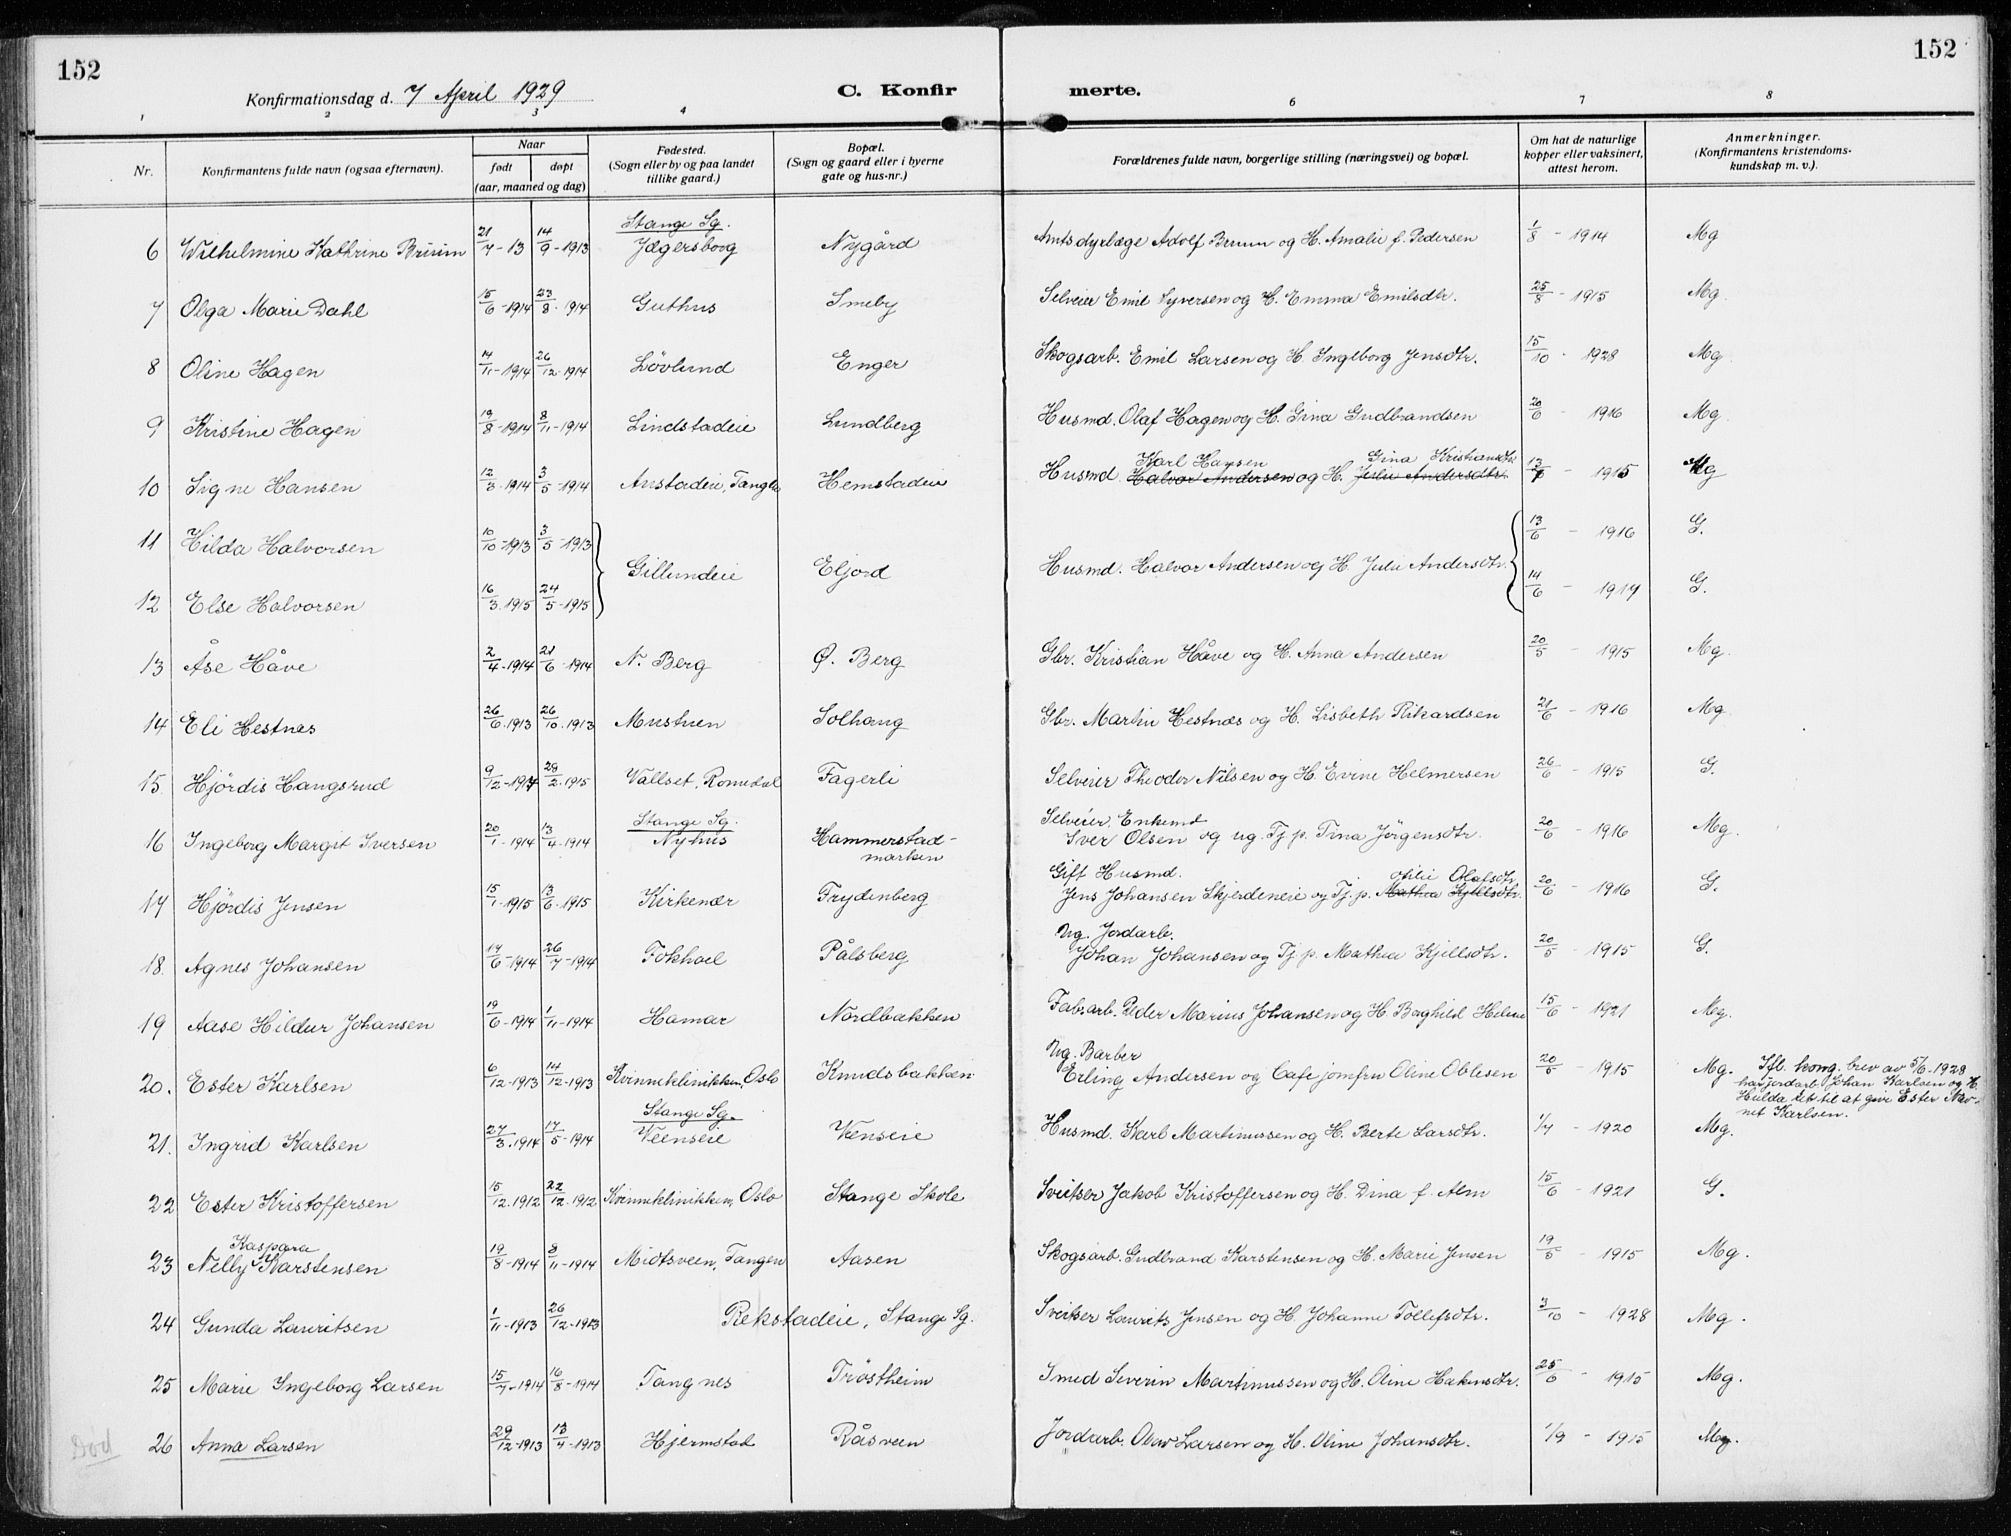 152
152
Konfirmationsdag d. 7 April 1929
C. Konfirmerte.
1 2 3 4 6 7 8
Nr. Konfirmantens fulde navn (ogsaa efternavn). Naar født døpt (aar, maaned og dag) Fødested. (Sogn eller by og paa landet tillike gaard.) Bopæl. (Sogn og gaard eller i byerne gate og hus-nr.) Forældrenes fulde navn, borgerlige stilling (næringsvei) og bopæl. Om hat de naturlige kopper eller vaksinert, attest herom. Anmerkninger. (Konfirmantens kristendomskundskap m. v.).
6 Wilhelmine Kathrine Bruun 21/7-13 14/9-1913 Stange Sg. Jægersborg Nygård Amtsdyrlæge Adolf Bruun og H. Amalie f. Pedersen 1/8 - 1914 Mg
7 Olga Marie Dahl 15/6-1914 23/8-1914 Guthus Smeby Selveier Emil Syversen og H. Emma Emilsdtr. 25/8 - 1915 Mg.
8 Oline Hagen 14/11-1914 26/12-1914 Lövlund Enger Skogsarb. Emil Larsen og H. Ingeborg Jensdtr. 15/10 - 1928 Mg.
9 Kristine Hagen 19/8-1914 8/11-1914 Lindstadeie Lundberg Husmd. Olaf Hagen og H. Gina Gudbrandsen 20/6 - 1916 Mg.
Karl Hansen Gina Kristiansdtr
10 Signe Hansen 12/3-1914 3/5-1914 Anstadeie, Tangen Hemstadeie Husmd. Halvor Andersen og H. Julie Andersdtr. - 1915 Mg
11 Hilda Halvorsen 10/10-1913 3/5-1913 13/6 - 1916 G.
Gillundeie Eljord Husmd. Halvor Andersen og H. Julie Andersdtr.
12 Else Halvorsen 16/3.1915 24/5-1915 14/6 - 1917 G.
13 Åse Håve 2/4-1914 21/6-1914 N. Berg Ø. Berg Gbr. Kristian Håve og H. Anna Andersen 20/5 - 1915 Mg.
14 Eli Hestnes 26/6.1913 26/10.1913 Mustuen Solhaug Gbr. Martin Hestnæs og H. Lisbeth Rikardsen 21/6 - 1916 Mg.
15 Hjördis Haugsrud 9/12-1914 28/2.1915 Vallset, Romedal Fagerli Selveier Theodor Nilsen og H. Evine Helmersen 26/6 - 1915 G.
16 Ingeborg Margit Iversen 20/1-1914 13/4-1914 Stange Sg. Nyhus Hammerstadmarken Selveier, Enkemd Iver Olsen og ug. Tj. p. Tina Jörgensdtr. 20/6 - 1916 Mg.
17 Hjördis Jensen 15/1-1915 13/6.1915 Kirkenær Frydenberg Gift Husmd. Jens Johansen Skjerdeneie og Tj. p. Mathea Kjellsdtr. Olafsdtr 20/6 - 1916 G.
18 Agnes Johansen 14/6-1914 26/7-1914 Fokhol Pålsberg Ug. Jordarb. Johan Johansen og Tj. p. Mathea Kjellsdtr. 20/5 - 1915 G.
19 Aase Hildur Johansen 19/6-1914 1/11-1914 Hamar Nordbakken Fab.arb. Peder Marius Johansen og H. Borghild Helene 15/6 - 1921 Mg.
20. Ester Karlsen 6/12-1913 14/12-1913 Kvinneklinikken, Oslo Knudsbakken Ug. Barber Erling Andersen og Cafejomfru Oline Oblesen 20/5 - 1915 Mg. Ifl. kong. brev av 5/6-1928 har jordarb. Johan Karlsen og H. Hulda ret til at give Ester Navnet Karlsen.
21. Ingrid Karlsen 27/3.1914 17/5-1914 Stange Sg. Veenseie Venseie Husmd. Karl Martinussen og H. Berte Larsdtr. 1/7 - 1920 Mg.
22 Ester Kristoffersen 15/12.1912 22/12.1912 Kvinneklinikken, Oslo Stange Skole Sveitser Jakob Kristoffersen og H. Dina f. Alm 15/6 - 1921 G.
Kaspara
23 Nelly Karstensen 19/8-1914 8/11-1914 Midtsveen, Tangen Aasen Skogsarb. Gudbrand Karstensen og H. Marie Jensen 19/5 - 1915 Mg.
24 Gunda Lauritsen 1/11-1913 26/12-1913 Rekstadeie, Stange Sg. Sveitser Laurits Jensen og H. Johanne Tollefsdtr. 3/10 - 1928 Mg.
25 Marie Ingeborg Larsen 15/7-1914 16/8-1914 Tangnes Tröstheim Smed Severin Martinussen og H. Oline Hakensdtr. 25/6 - 1915 Mg.
Död 26 Anna Larsen 29/12-1913 13/4-1913 Hjermstad Råsveen Jordarb. Olav Larsen og H. Oline Johansdtr. 1/9 - 1915 Mg.